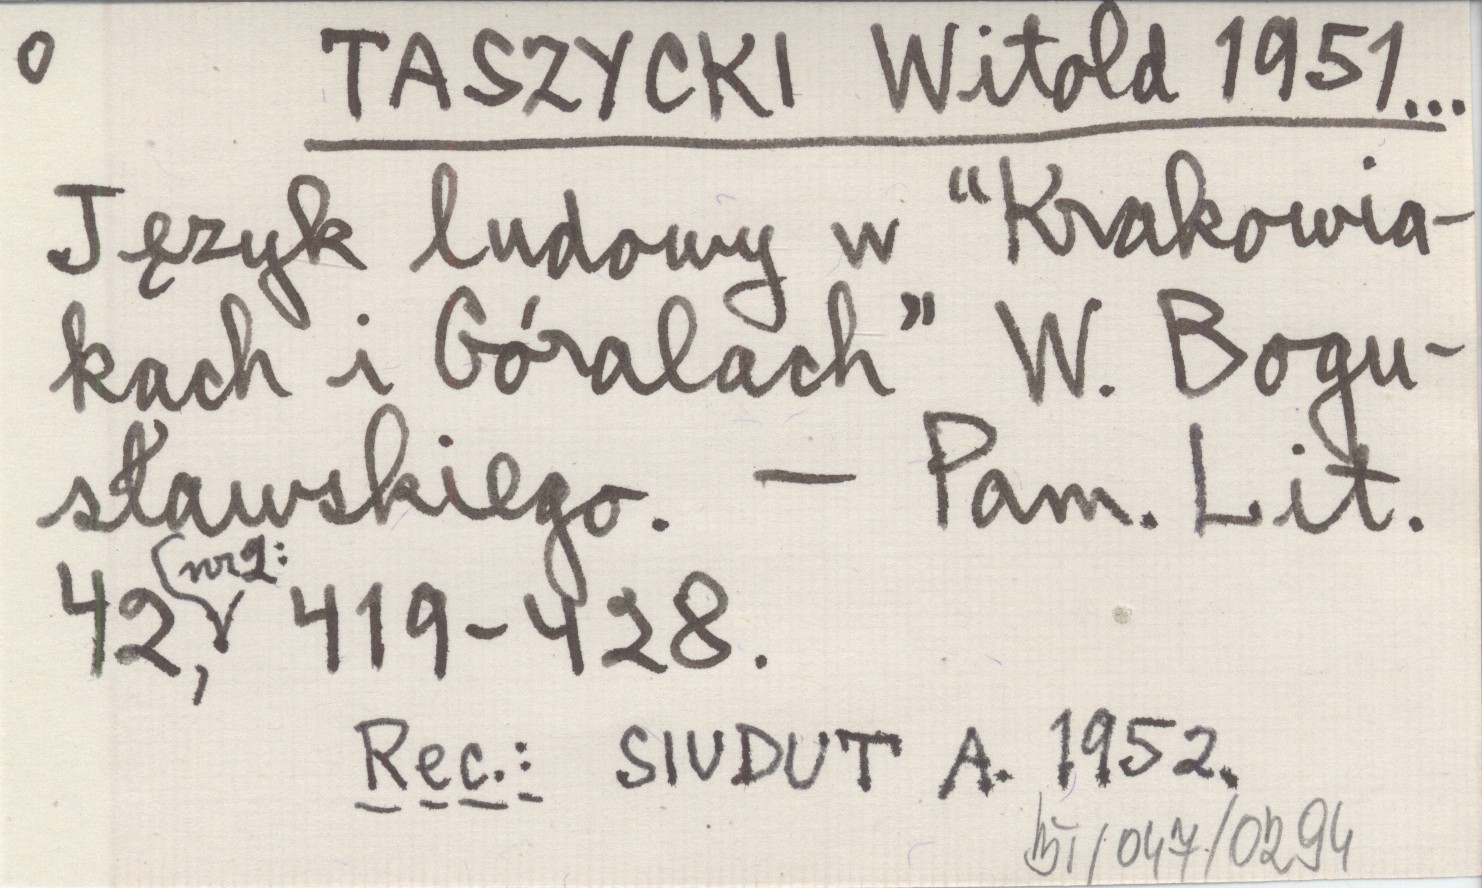 O TASZYCKI Witold 1951...
Język ludowy w "Krakowia-
kach i Góralach" W. Bogu-
sławskiego. — Pam. Lit.
42, nr 2: 419-428.
Rec.: SIUDUT A. 1952.
/047/0294